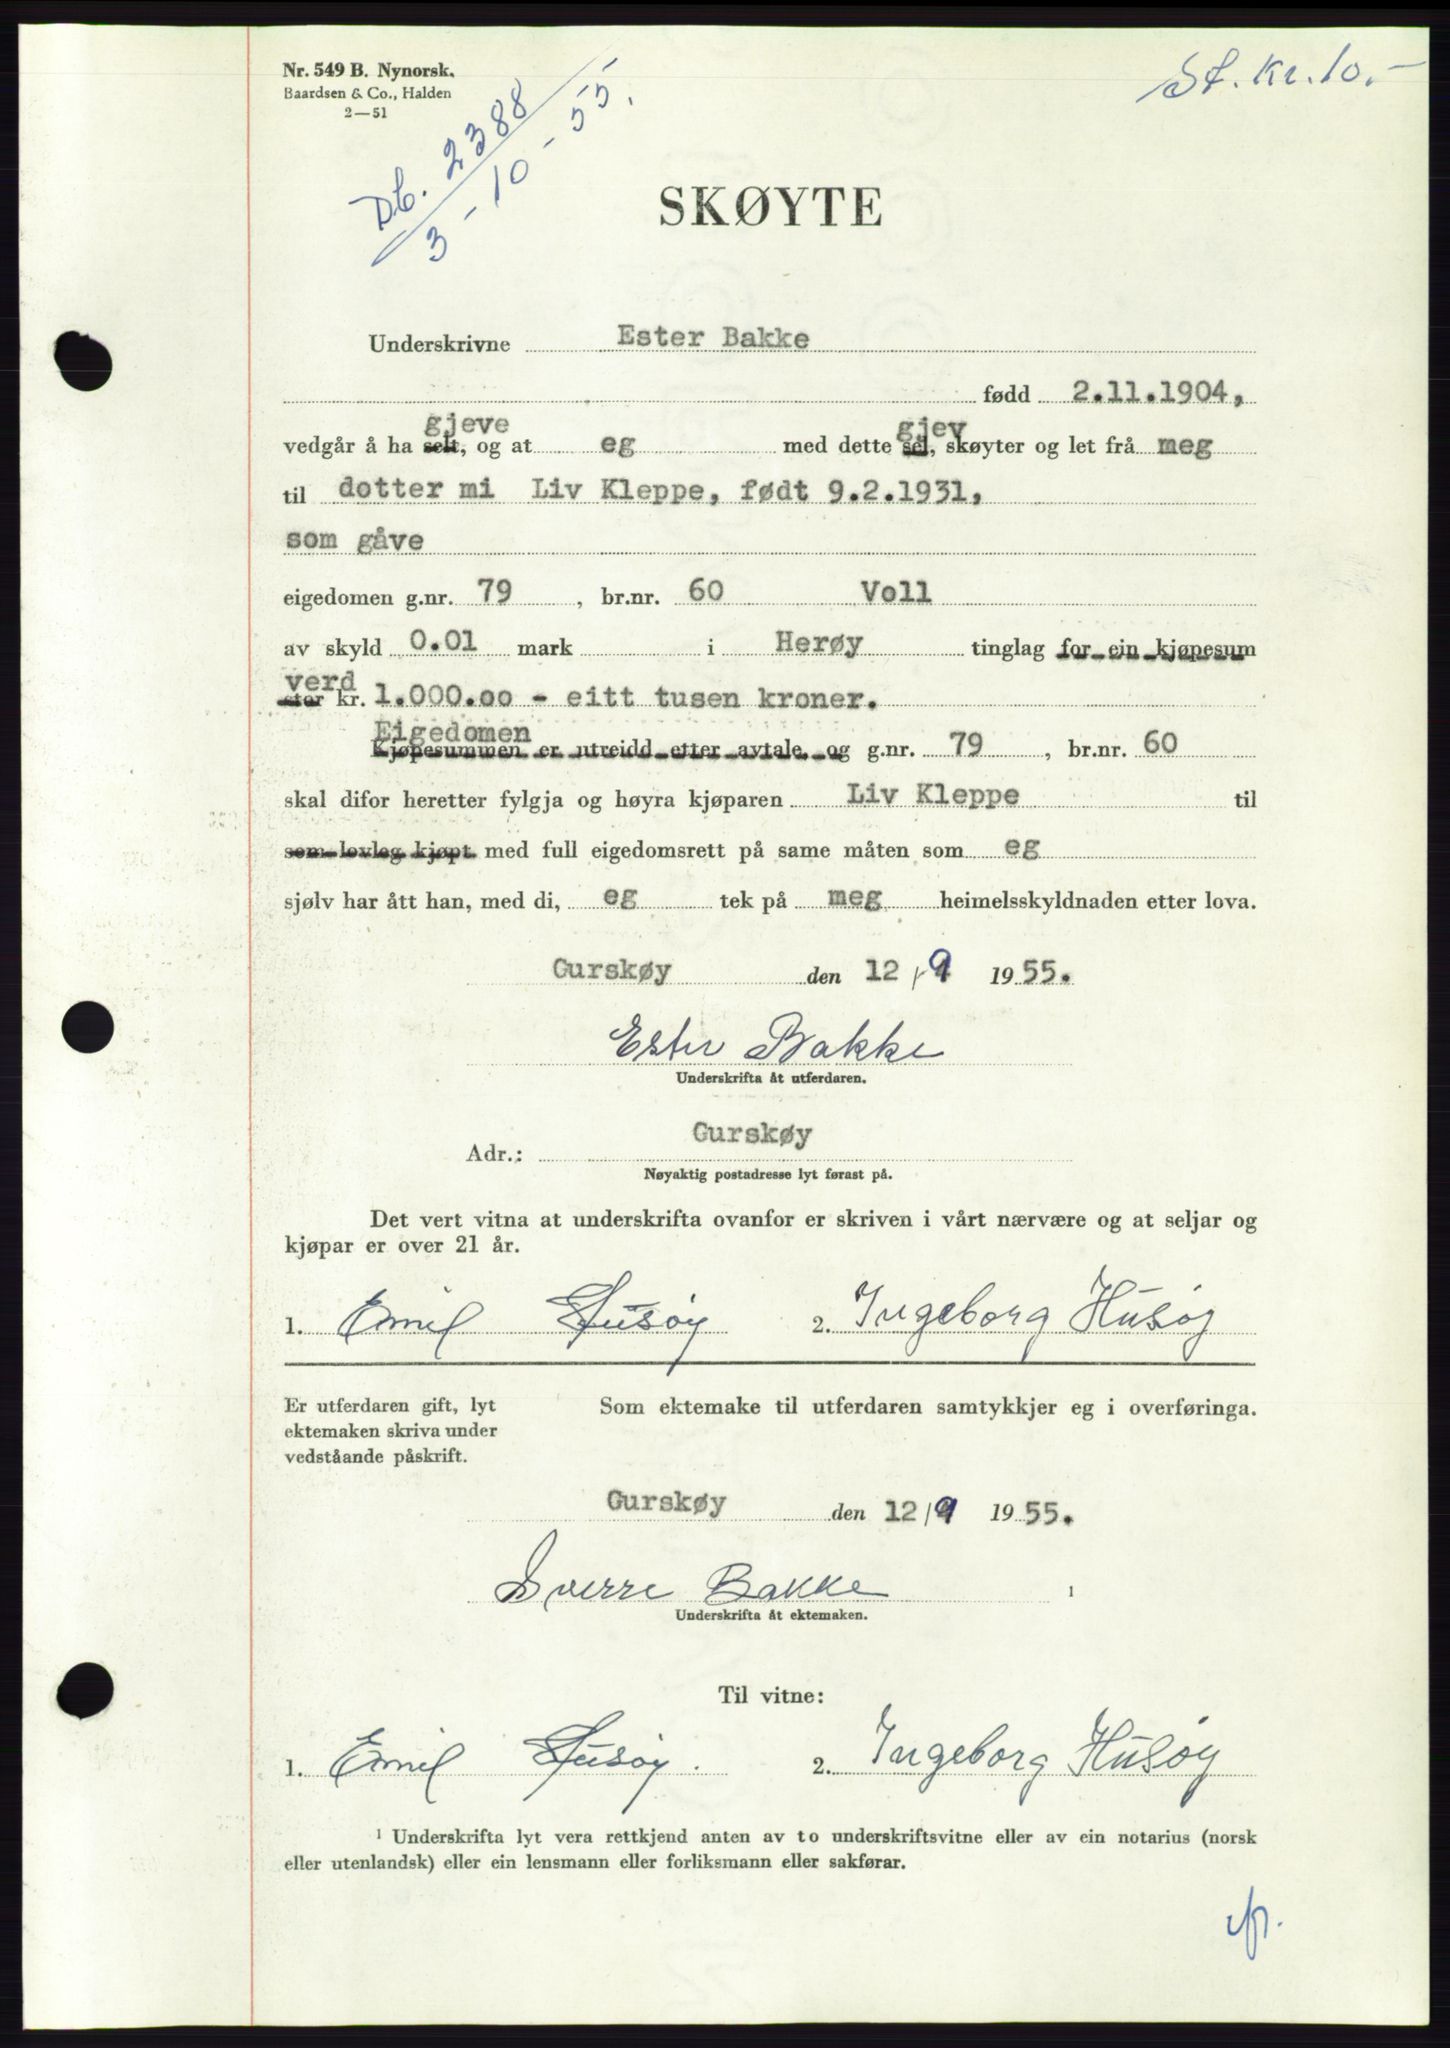 Nr. 549 B. Nynorsk.
Baardsen & Co., Halden
2—51
St. kr. 10.-
Db. 2388
3-10-55.
SKØYTE
Underskrivne Ester Bakke
fødd 2.11.1904,
gjeve gjev
vedgår å ha selt, og at eg med dette sel, skøyter og let frå meg
til dotter mi Liv Kleppe, født 9.2.1931,
som gåve
eigedomen g.nr. 79, br.nr. 60 Voll
av skyld 0.01 mark i Herøy tinglag for ein kjøpesum
verd
stor kr. 1.000.oo - eitt tusen kroner.
Eigedomen
Kjøpesummen er utreidd etter avtale, og g.nr. 79, br.nr. 60
skal difor heretter fylgja og høyra kjøparen Liv Kleppe til
som lovleg kjøpt med full eigedomsrett på same måten som eg
sjølv har ått han, med di, eg tek på meg heimelsskyldnaden etter lova.
Gurskøy den 12/9 1955.
Ester Bakke
Underskrifta åt utferdaren.
Adr.: Gurskøy
Nøyaktig postadresse lyt førast på.
Det vert vitna at underskrifta ovanfor er skriven i vårt nærvære og at seljar og
kjøpar er over 21 år.
1. Emil Husøy 2. Ingeborg Husøy
Er utferdaren gift, lyt
ektemaken skriva under
vedståande påskrift.
Som ektemake til utferdaren samtykkjer eg i overføringa.
Gurskøy den 12/9 1955.
Sverre Bakke 1
Underskrifta åt ektemaken.
Til vitne:
1. Emil Husøy. 2. Ingeborg Husøy
1 Underskrifta lyt vera rettkjend anten av to underskriftsvitne eller av ein notarius (norsk
eller utenlandsk) eller ein lensmann eller forliksmann eller sakførar.